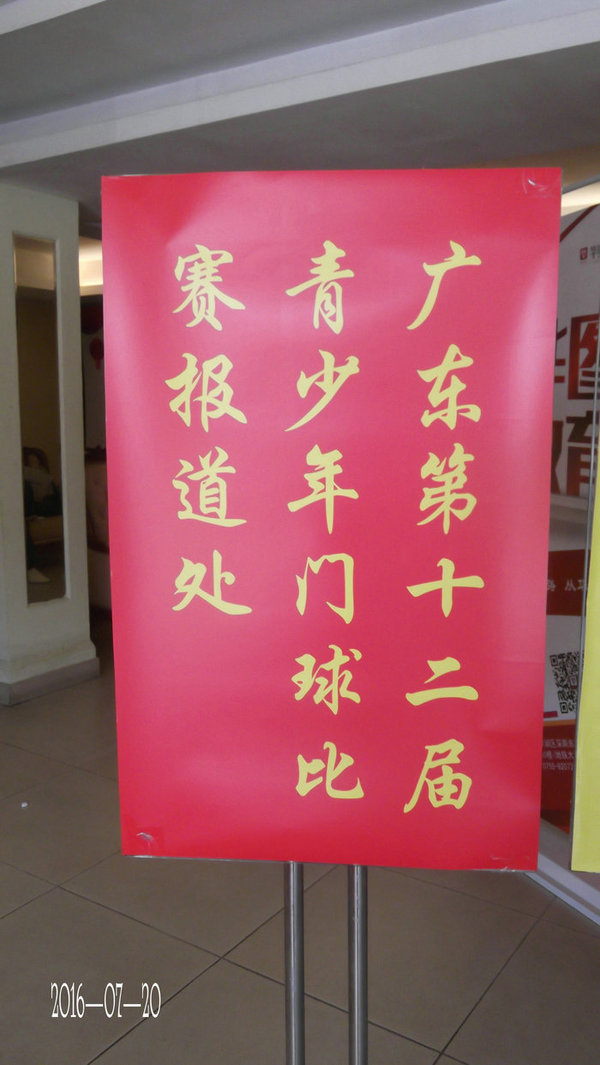 广东第十二届
青少年门球比
赛报道处
2016—07—20